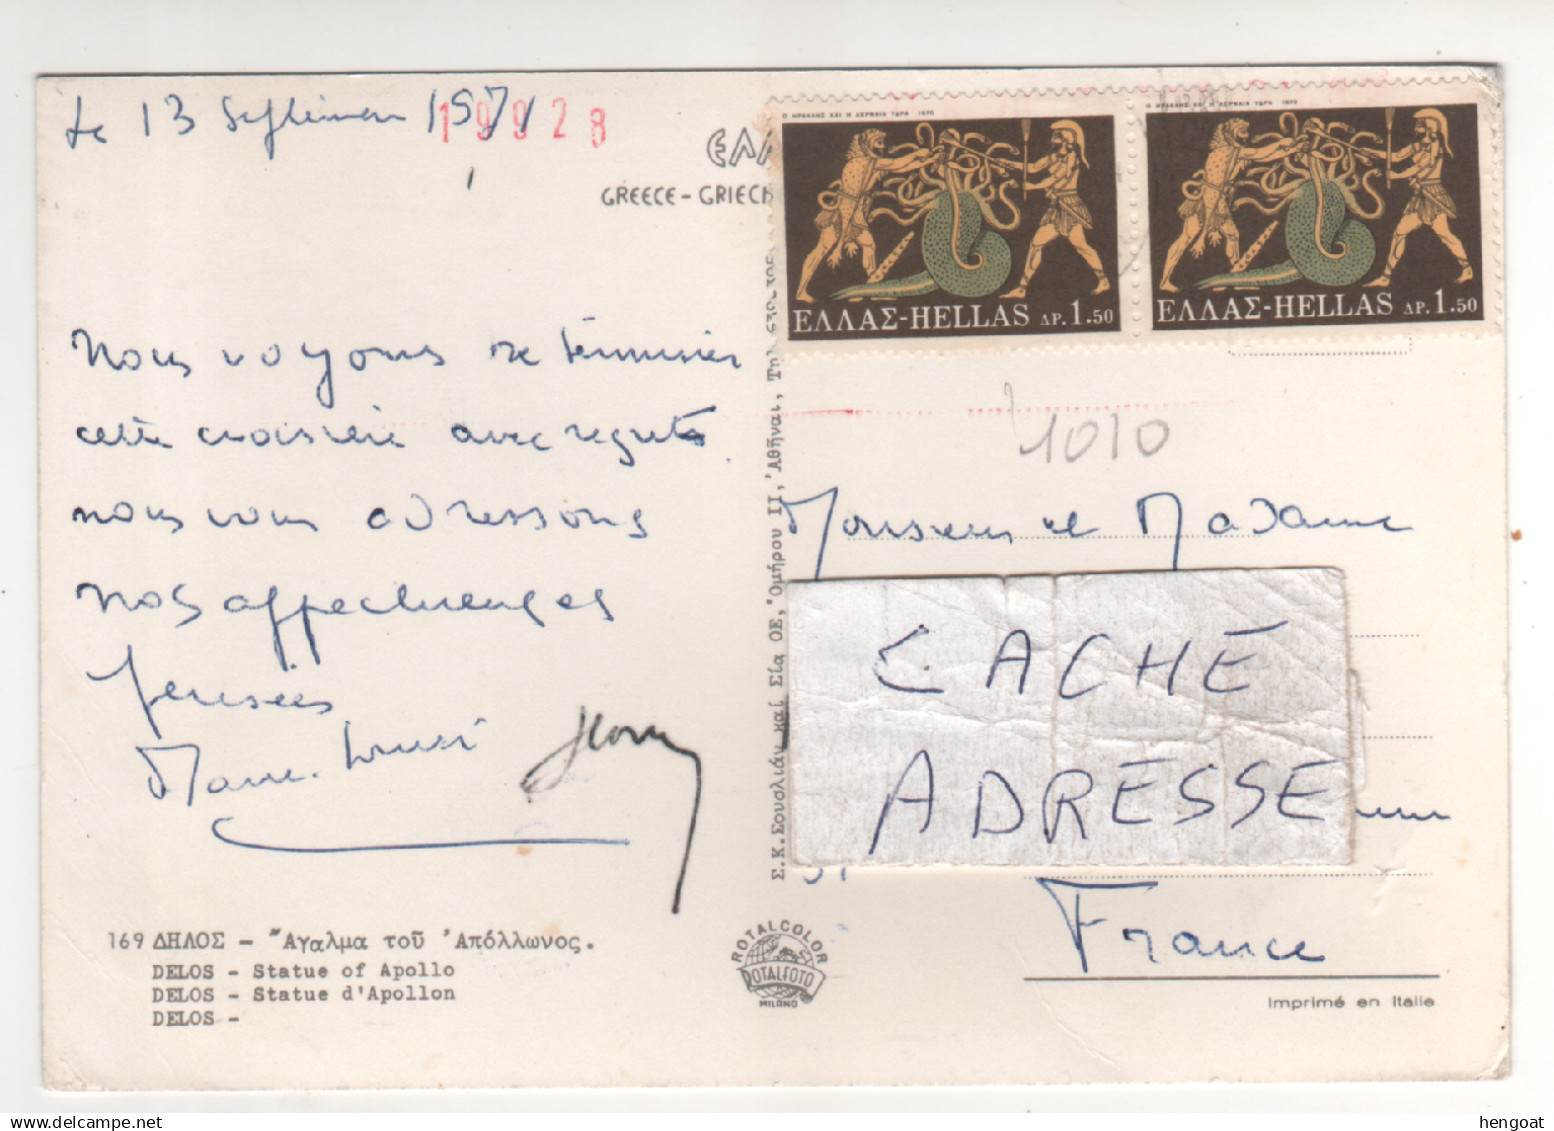 Le 13 Septembre 1971
19928
ΕΛΛ
GREECE - GRIECH
Ο ΗΡΑΚΛΗΣ ΚΑΙ Η ΛΕΡΝΑΙΑ ΥΔΡΑ 1970
ΕΛΛΑΣ-HELLAS ΔΡ. 1.50
Ο ΗΡΑΚΛΗΣ ΚΑΙ Η ΛΕΡΝΑΙΑ ΥΔΡΑ 1970
ΕΛΛΑΣ-HELLAS ΔΡ. 1.50
Nous voyons se terminer
cette croisière avec regrets
nous vous adressons
nos affectueuses
pensées
Marie-Louise
1010
Monsieur et Madame
CACHÉ
ADRESSE
France
Σ.Κ.Σουσλιάν καί Σία ΟΕ, Ὁμήρου ΙΙ, Ἀθῆναι, Τηλ.
169 ΔΗΛΟΣ - Ἄγαλμα τοῦ Ἀπόλλωνος.
DELOS - Statue of Apollo
DELOS - Statue d'Apollon
DELOS -
ROTALCOLOR
ROTALFOTO
MILANO
Imprimé en Italie
hengoat